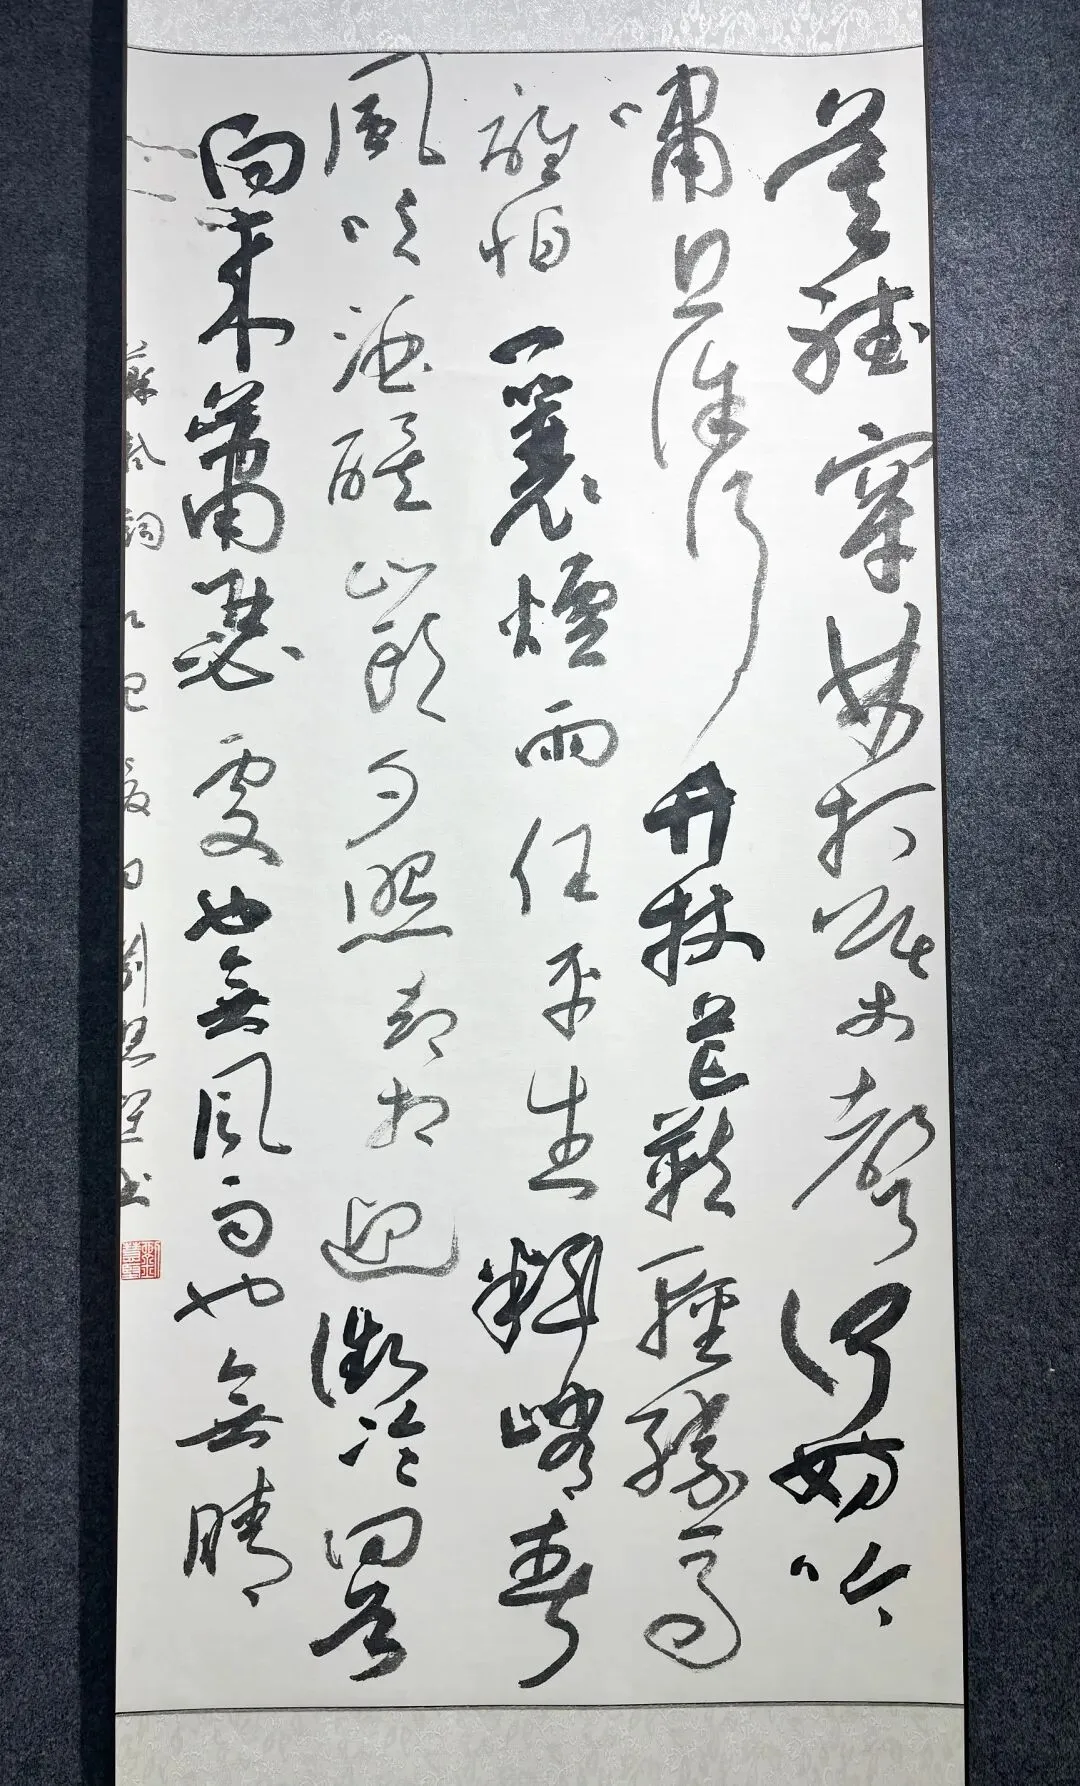 莫聽穿林打葉聲何妨吟
嘯且徐行竹杖芒鞋輕勝馬
誰怕一蓑煙雨任平生料峭春
風吹酒醒山頭夕照卻相迎微冷回首
向來蕭瑟處也無風雨也無晴
蘇軾詞乙巳夏月劉書